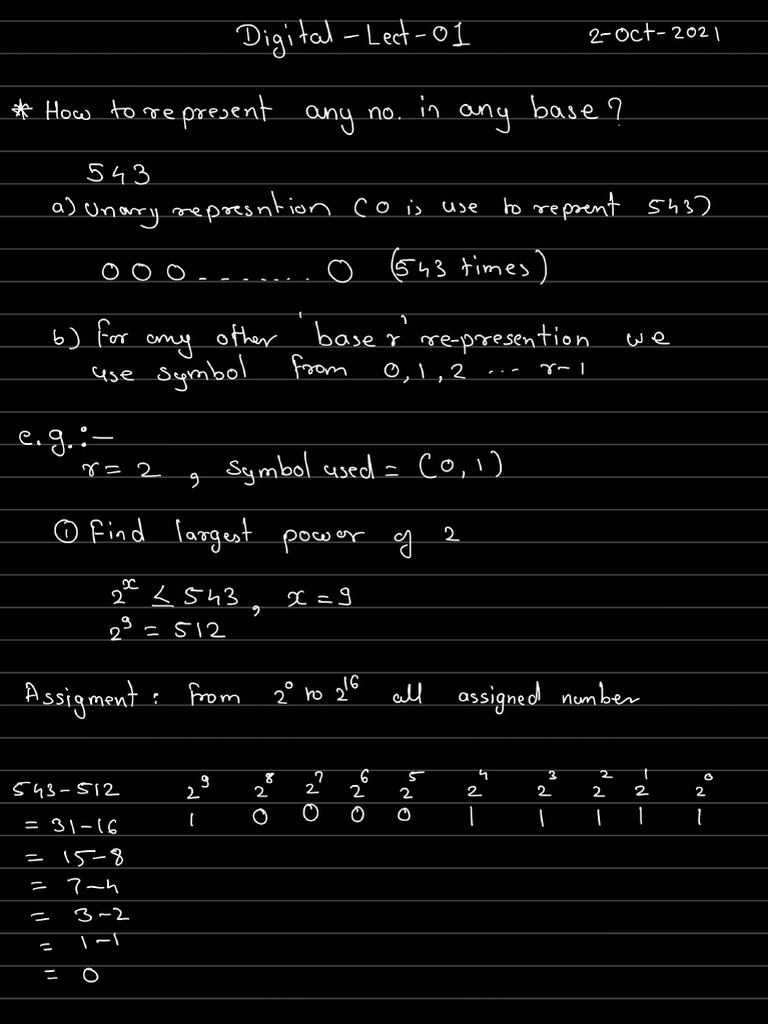 Digital - Lect - 01
2-Oct-2021
* How to represent any no. in any base?
543
a) Unary represntion (0 is use to reprent 543)
0 0 0 - - - - ... 0 (543 times)
b) For any other 'base r' re-presention we
use symbol from 0, 1, 2 ... r-1
e.g.:-
r = 2, Symbol used = (0, 1)
① Find largest power of 2
2^x ≤ 543, x = 9
2^9 = 512
Assigment: from 2^0 to 2^16 all assigned number
543-512 2^9 2^8 2^7 2^6 2^5 2^4 2^3 2^2 2^1 2^0
= 31-16 1 0 0 0 0 1 1 1 1 1
= 15-8
= 7-4
= 3-2
= 1-1
= 0